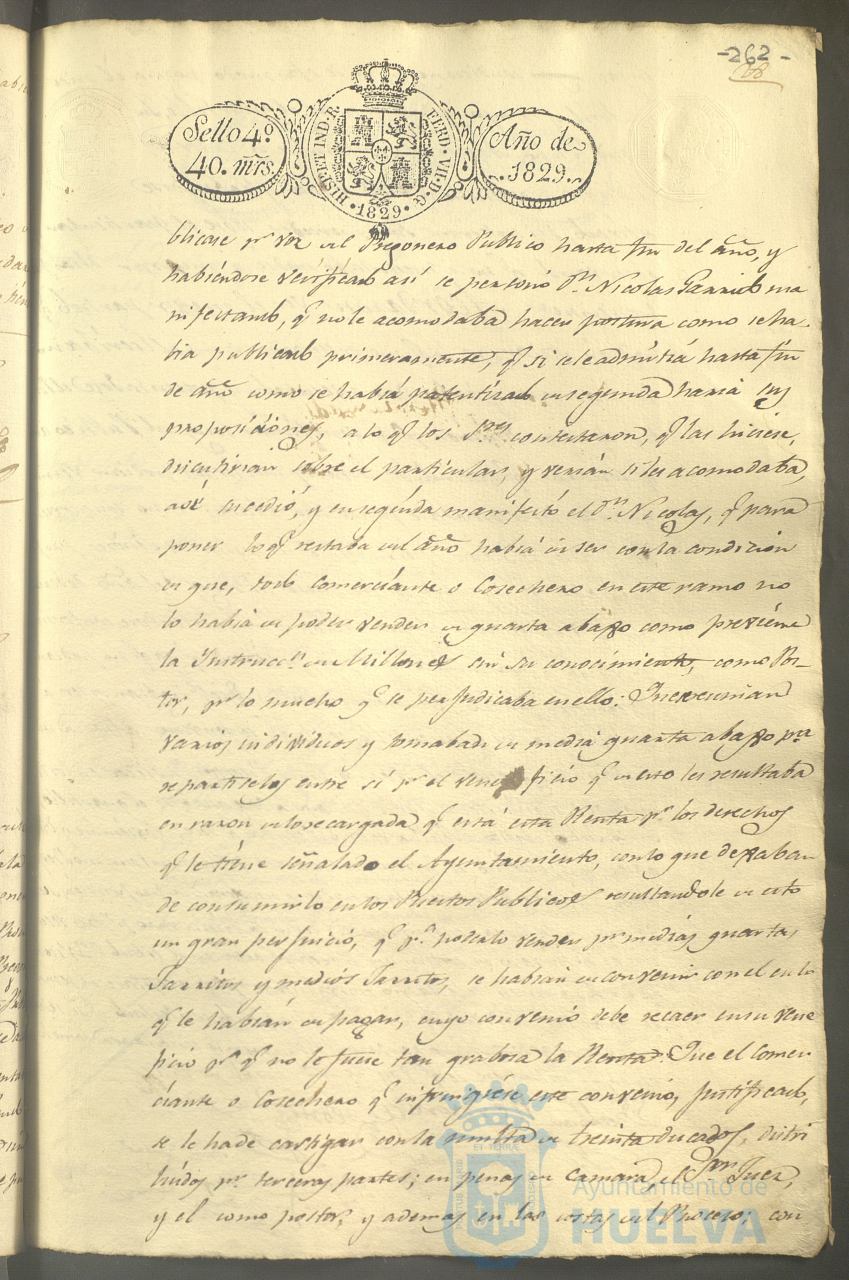 -262-
Sello 4º
40. mrs.
HISP. ET IND. R.
FERD. VII. D. G.
1829
Año de
1829.
blicase pr voz del Pregonero Publico hasta fin del año, y
habiendose verificado asi se personó Dn Nicolas Garrido ma
nifestando, q no le acomodaba hacer postura como se ha-
bia publicado primeramente, q si se le admitia hasta fin
de año como se habia patentizado en segunda haria sus
proposiciones, a lo q los Sres contestaron, q las hiciese,
discutirian sobre el particular, y verian si les acomodaba,
asi sucedió, y en seguida manifestó el Dn Nicolas, q para
poner lo q restaba del año habia de ser con la condicion
de que, todo comerciante o Cosechero en este ramo no
lo habia de poder vender de quarta abaxo como previene
la Instruccn de Millones sin su conocimiento, como Pos-
tor, pr lo mucho q se perjudicaba en ello: Que se unian
varios individuos y tomaban de media quarta abaxo pa
repartirselos entre si pr el veneficio q en esto les resultaba
en razon de lo recargada q está esta Renta pr los derechos
q le tiene señalado el Ayuntamiento, con lo que dexaban
de consumirlo en los Puestos Publicos resultandole en esto
un gran perjuicio, q pa poderlo vender pr medias quartas
Jarritos y medios Jarritos, se habian de convenir con el en lo
q le habian de pagar, cuyo convenio debe recaer en su vene
ficio pr q no le fuese tan grabosa la Renta: Que el Comer-
ciante o Cosechero q infringiese este convenio, justificado,
se le ha de castigar con la multa de treinta ducados, distri
buidos pr terceras partes; en penas de Camara, el Sor Juez,
y el como postor, y ademas en las costas del Proceso; con
Ayuntamiento de
HUELVA